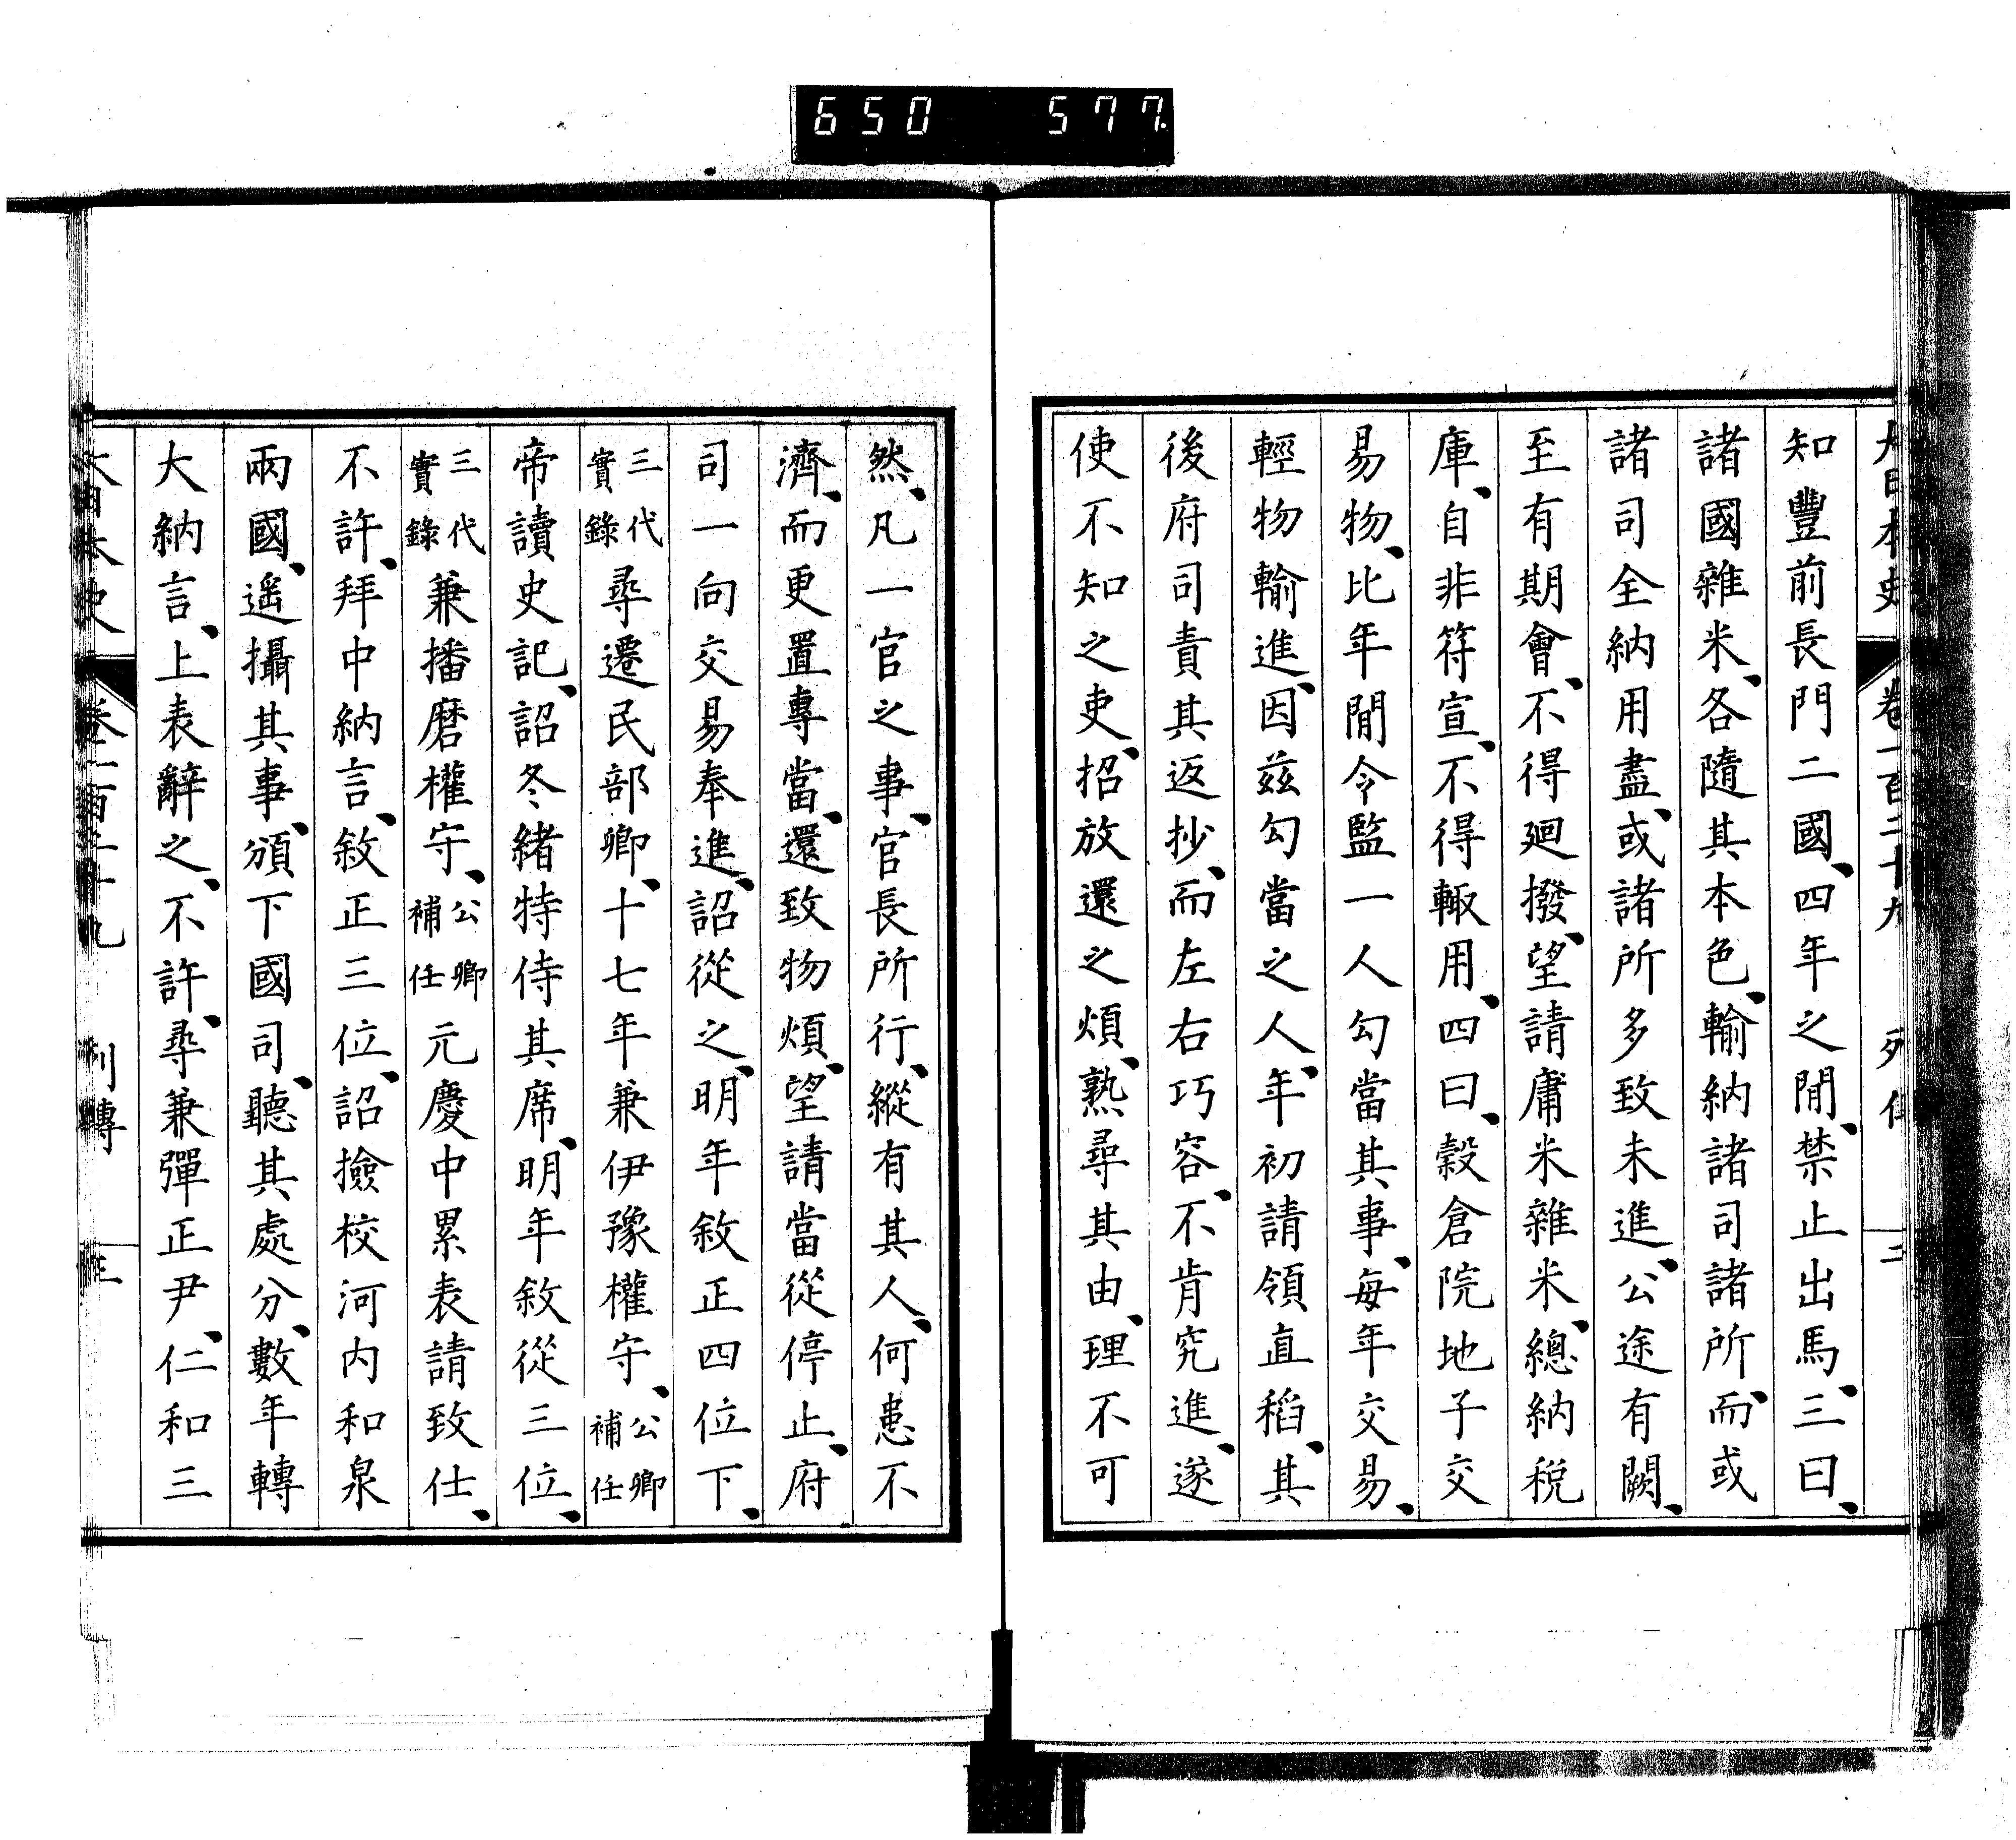 650 577.
大日本史 卷一百二十九 列傳 二
知豐前長門二國、四年之閒、禁止出馬、三曰、
諸國雜米、各隨其本色、輸納諸司諸所、而或
諸司全納用盡、或諸所多致未進、公途有闕、
至有期會、不得廻撥、望請庸米雜米、總納稅
庫、自非符宣、不得輙用、四曰、穀倉院地子交
易物、比年閒令監一人勾當其事、每年交易、
輕物輸進、因茲勾當之人、年初請領直稻、其
後府司責其返抄、而左右巧容、不肯究進、遂
使不知之吏、招放還之煩、熟尋其由、理不可
然、凡一官之事、官長所行、縱有其人、何患不
濟、而更置專當、還致物煩、望請當從停止、府
司一向交易奉進、詔從之、明年敘正四位下、
三代實錄尋遷民部卿、十七年兼伊豫權守、公卿補任
帝讀史記、詔冬緒特侍其席、明年敘從三位、
三代實錄兼播磨權守、公卿補任元慶中累表請致仕、
不許、拜中納言、敘正三位、詔撿校河內和泉
兩國、遥攝其事、頒下國司、聽其處分、數年轉
大納言、上表辭之、不許、尋兼彈正尹、仁和三
大日本史 卷一百二十九 列傳 三